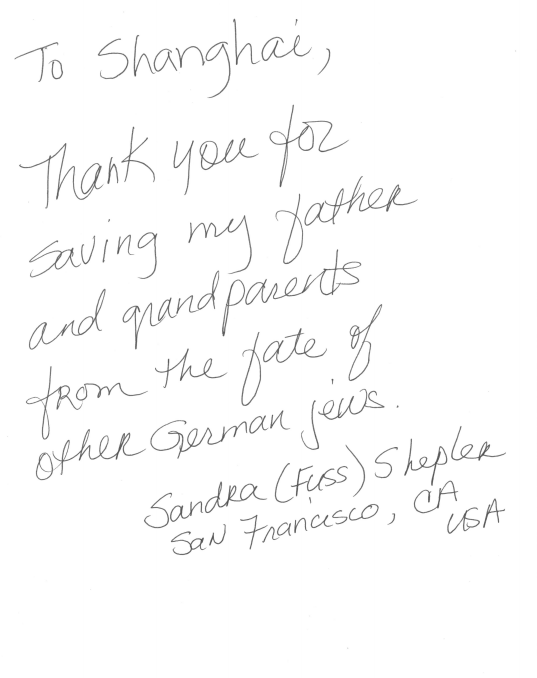 To Shanghai,
Thank you for
saving my father
and grandparents
from the fate of
other German jews.
Sandra (Fuss) Shepler
San Francisco, CA
USA